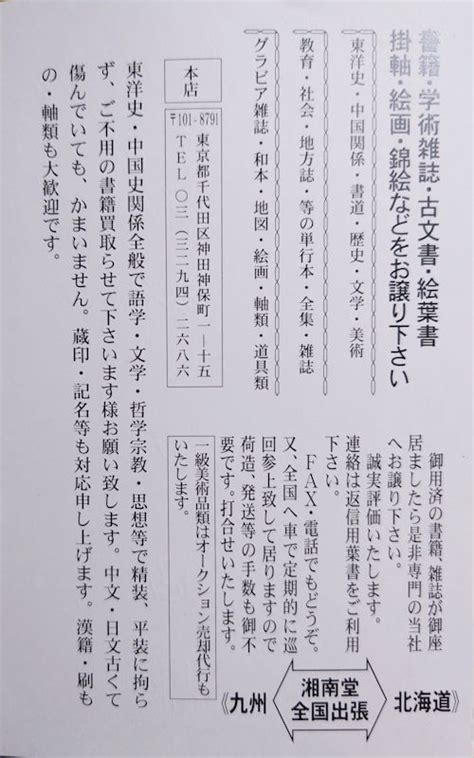 書籍・学術雑誌・古文書・絵葉書
掛軸・絵画・錦絵などをお譲り下さい
東洋史・中国関係・書道・歴史・文学・美術
教育・社会・地方誌・等の単行本・全集・雑誌
グラビア雑誌・和本・地図・絵画・軸類・道具類
本店
〒101-8791
東京都千代田区神田神保町一—十五
TEL〇三(三二九四)二六八六
東洋史・中国史関係全般で語学・文学・哲学宗教・思想等で精装、平装に拘ら
ず、ご不用の書籍買取らせて下さいます様お願い致します。中文・日文古くて
傷んでいても、かまいません。蔵印・記名等も対応申し上げます。漢籍・刷も
の・軸類も大歓迎です。
御用済の書籍、雑誌が御座
居ましたら是非専門の当社
へお譲り下さい。
誠実評価いたします。
連絡は返信用葉書をご利用
下さい。
FAX・電話でもどうぞ。
又、全国へ車で定期的に巡
回参上致して居りますので
荷造、発送等の手数も御不
要です。打合せいたします。
一級美術品類はオークション売却代行も
いたします。
北海道》
湘南堂
全国出張
《九州